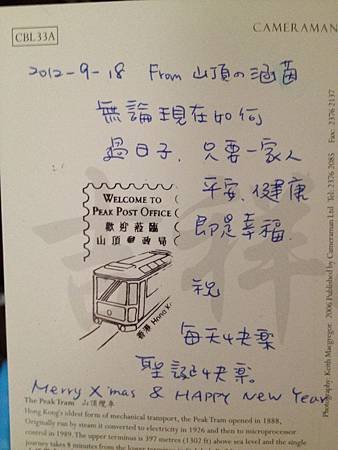 CBL33A
CAMERAMAN
2012-9-18 From 山頂の涵茵
無論現在如何
過日子，只要一家人
平安、健康
即是幸福.
祝
每天快樂
聖誕快樂.
Merry X'mas & HAPPY New Year
WELCOME TO
PEAK POST OFFICE
歡迎蒞臨
山頂郵政局
香港 Hong K
吉祥
The Peak Tram 山頂纜車
Hong Kong's oldest form of mechanical transport, the Peak Tram opened in 1888.
Originally run by steam it converted to electricity in 1926 and then to microprocessor
control in 1989. The upper terminus is 397 metres (1302 ft) above sea level and the single
journey takes 8 minutes from the lower terminus
Photography: Keith Macgregor 2006 Published by Cameraman Ltd Tel: 2376 2085 Fax: 2376 2137